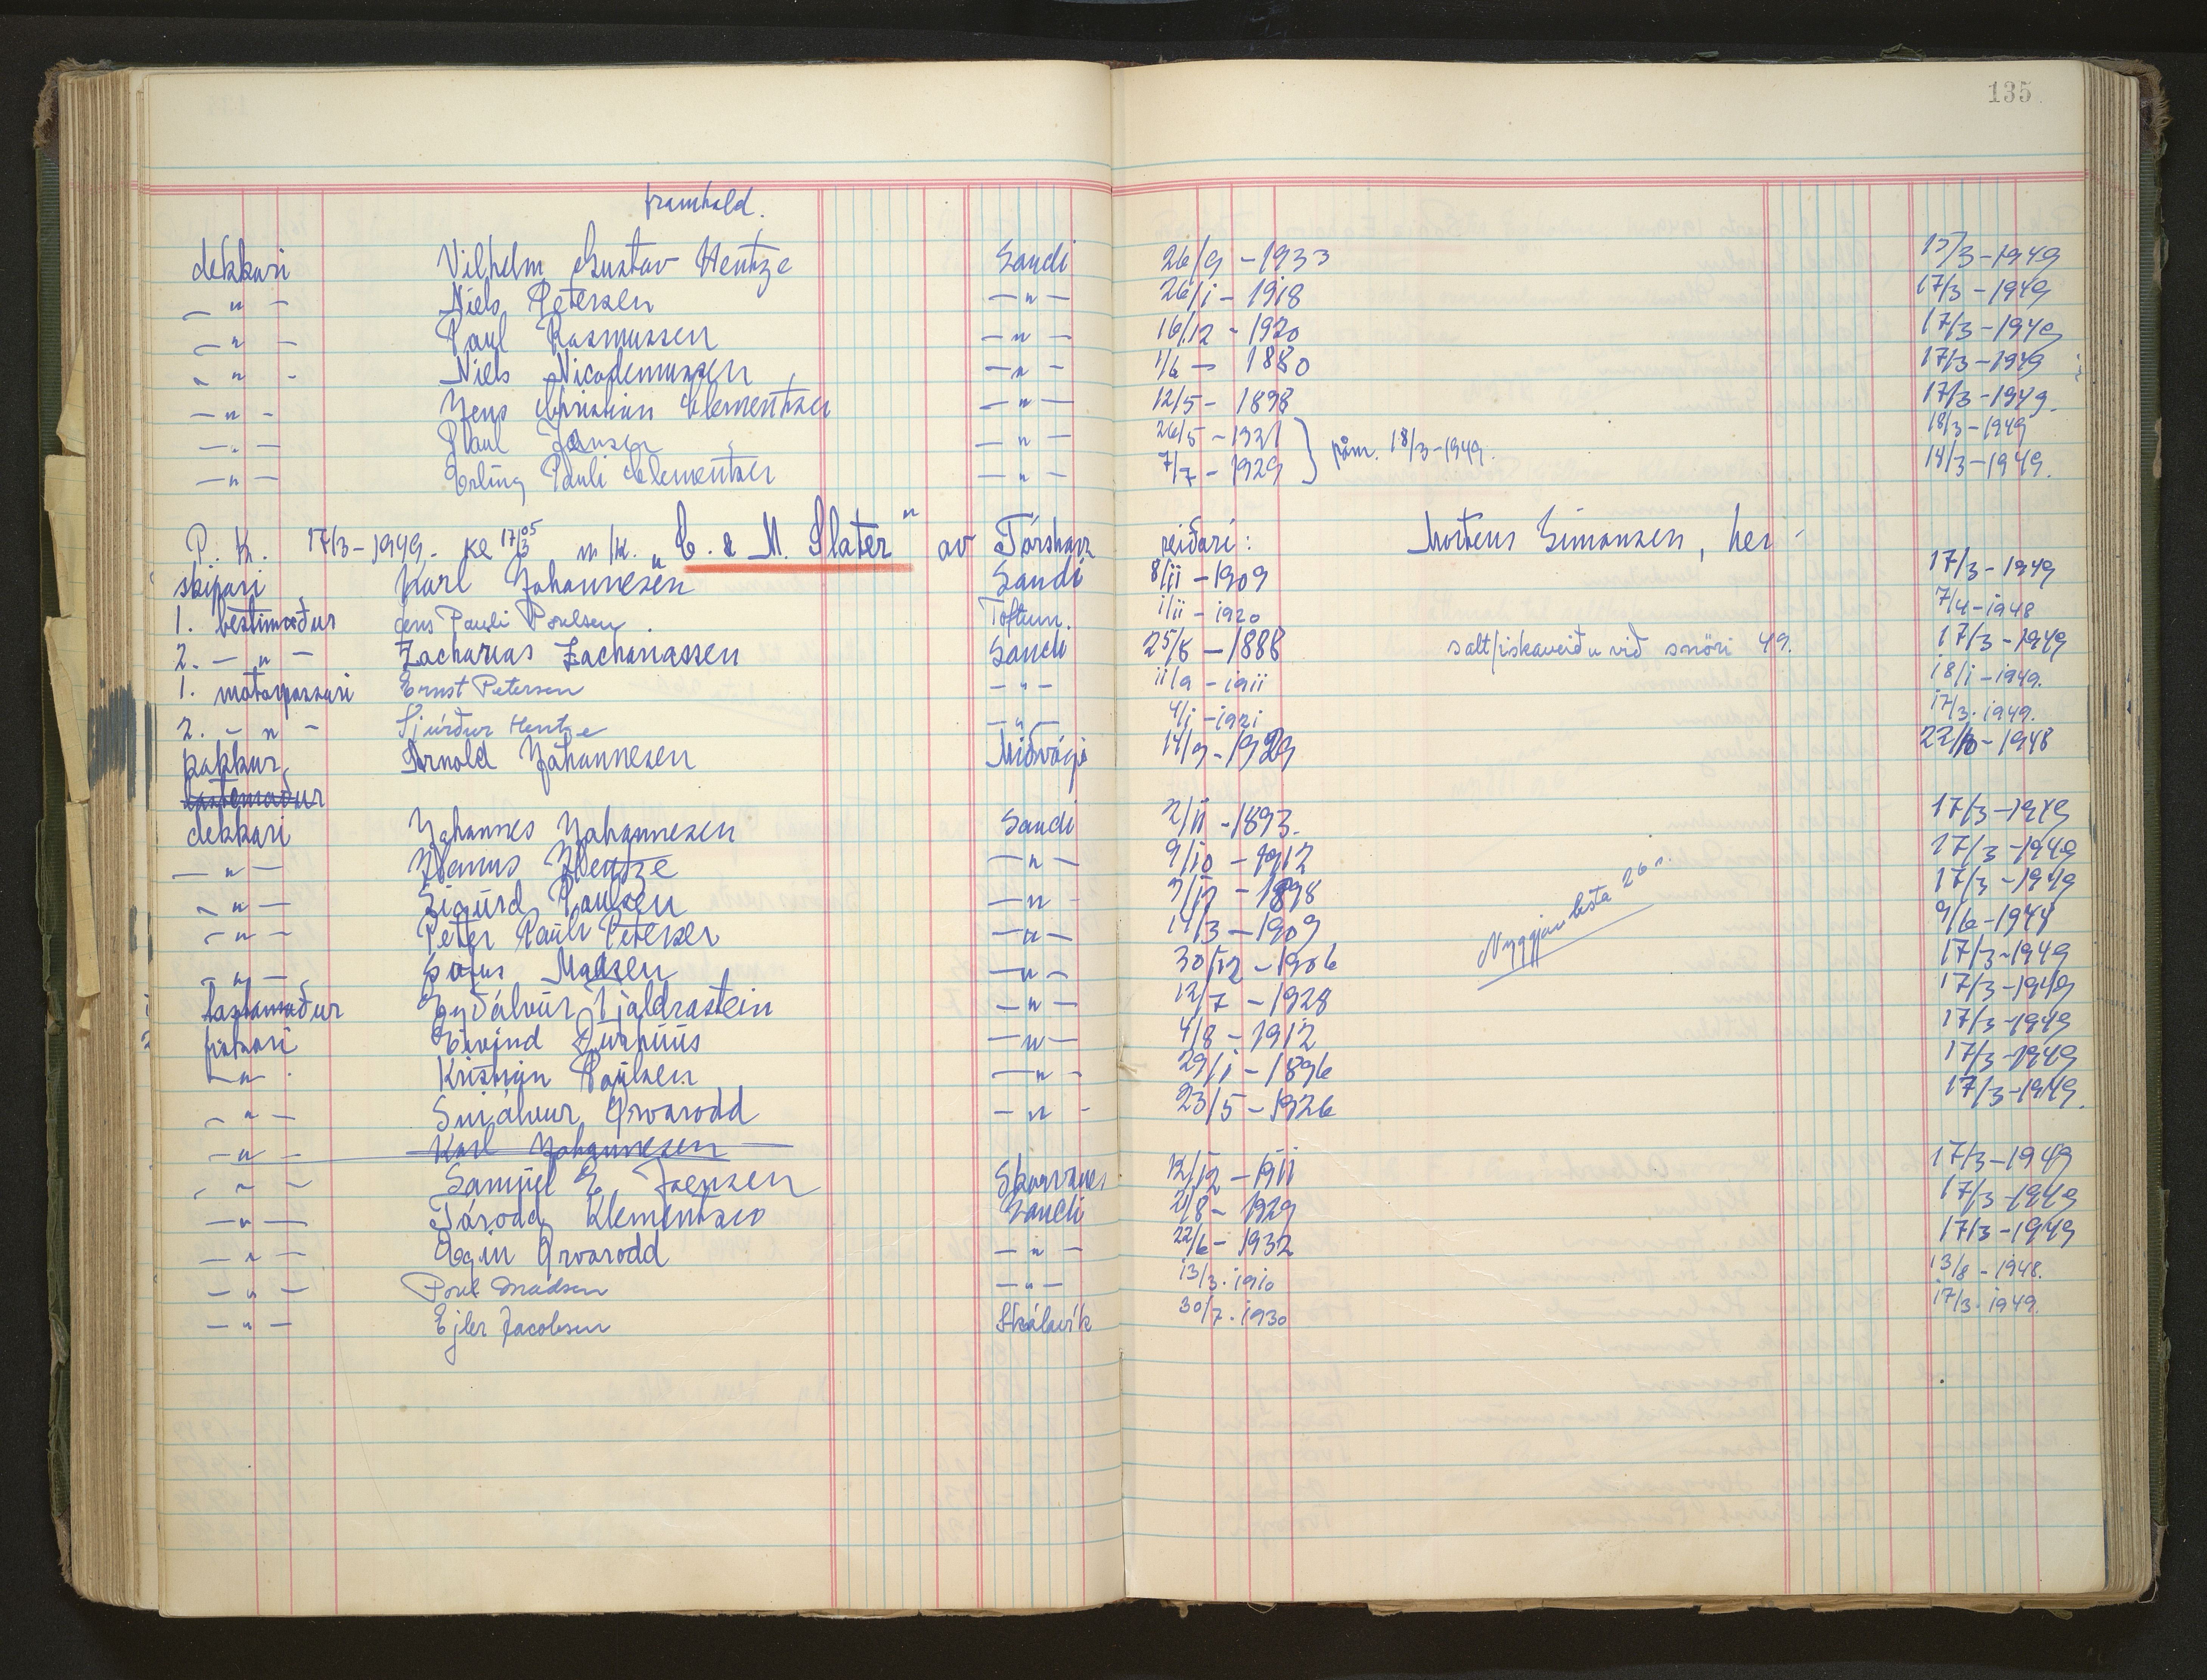 135
framhald.
dekkari Vilhelm Gustav Hentze Sandi 26/9 - 1933 17/3-1949
- " - Niels Petersen - " - 26/1 - 1918 17/3-1949
- " - Paul Rasmussen - " - 16/12 - 1920 17/3-1949
- " - Niels Nicodemussen - " - 1/6 - 1880 17/3-1949
- " - Jens Christian Clementsen - " - 12/5 - 1898 17/3-1949.
- " - Paul Jensen - " - 26/5 - 1921 } påm. 18/3-1949. 18/3-1949
- " - Erling Pauli Clementsen - " - 7/7 - 1929 18/3-1949.
P. K. 17/3-1949. "C. & M. Slater" av Tórshavn reiðari: Mortens Simonsen, her
skipari Karl Johannesen Sandi 8/11 - 1909 17/3-1949
1. bestimaður Jens Pauli Poulsen. Toftum. 1/11 - 1920 7/4-1948
2. - " - Zacharias Zachariassen Sandi 25/8 - 1888 saltfiskaveiðu við snöri 49. 17/3-1949
1. motorpassari Ernst Petersen - " - 11/9 - 1911 18/1-1949.
2. - " - Sjúrður Hentze - " - 4/1 - 1921 17/3-1949.
kokkur Arnold Johannesen Miðvági 14/9 - 1929 22/10-1948
lastamaður
dekkari Johannes Johannesen Sandi 2/11 - 1893. 17/3-1949
- " - Hanus Hentze - " - 9/10 - 1912 17/3-1949
- " - Sigurd Paulsen - " - 1898 17/3-1949
- " - Peter Pauli Petersen - " - 14/3 - 1909 9/6-1948
- " - Sofus Madsen - " - 30/12 - 1906 Nyggjan lista 26 s. 17/3-1949
lastamaður Eyðálvur Tjaldrastein - " - 12/7 - 1928 17/3-1949
fiskari Eivind Durhuus - " - 4/8 - 1912 17/3-1949
- " - Kristian Poulsen - " - 29/1 - 1896 17/3-1949
- " - Sniálvur Ørvarodd - " - 23/5 - 1926 17/3-1949.
- " - Karl Johannesen
- " - Samuel E. Joensen Skarvanes 12/12 - 1911 17/3-1949
- " - Tóroddy Klementsen Sandi 2/8 - 1929 17/3-1949
- " - Regin Ørvarodd - " - 22/6 - 1932 17/3-1949
- " - Poul Madsen - " - 13/3. 1910 13/8-1948.
- " - Ejler Jacobsen Skálavík 30/7. 1930 17/3. 1949.